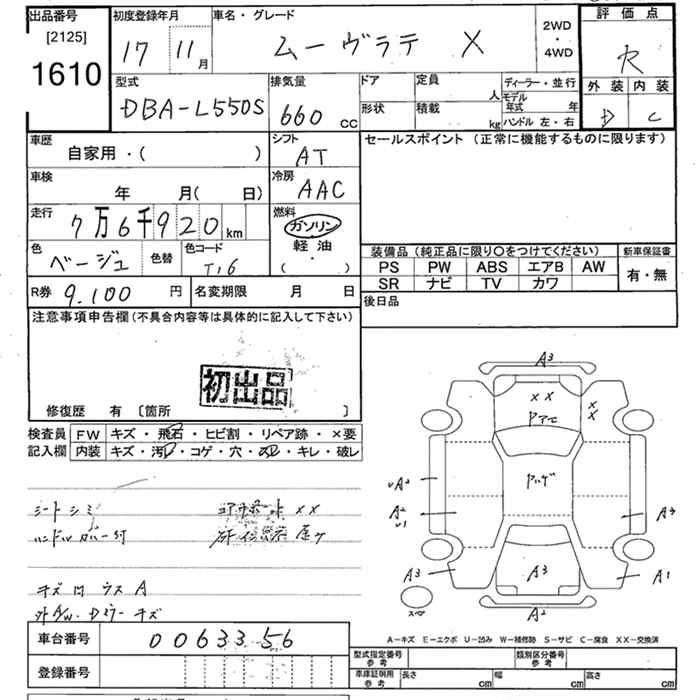 出品番号 [2125] 1610
初度登録年月 17 11月
車名・グレード ムーヴラテ X
2WD・4WD
評価点 R
外装 D 内装 C
型式 DBA-L550S
排気量 660 CC
ドア
形状
定員 人
積載 kg
ディーラー・並行
モデル年式 年
ハンドル 左・右
車歴 自家用・( )
シフト AT
セールスポイント (正常に機能するものに限ります)
車検 年 月( 日)
冷房 AAC
走行 7万6千920km
燃料 ガソリン 軽油 ( ・ )
色 ベージュ 色替
色コード T16
装備品 (純正品に限り○をつけてください)
新車保証書
PS PW ABS エアB AW
SR ナビ TV カワ
有・無
R券 9.100円
名変期限 月 日
後日品
注意事項申告欄 (不具合内容等は具体的に記入して下さい)
初出品
修復歴 有 [箇所 ]
検査員 FW キズ・飛石・ヒビ割・リペア跡・×要
記入欄 内装 キズ・汚レ・コゲ・穴・スレ・キレ・破レ
シートシミ
ハンドルカバー付
キズ凹ウスA
外AW.Dミラーキズ
A3
××
××
A2
A2
U1
A3
A3
A3
A1
A2
スペア
A-キズ E-エクボ U-凹み W-補修跡 S-サビ C-腐食 XX-交換済
車台番号 0063356
登録番号
型式指定番号 参考
類別区分番号 参考
車庫証明用 参考 長さ cm 幅 cm 高さ cm